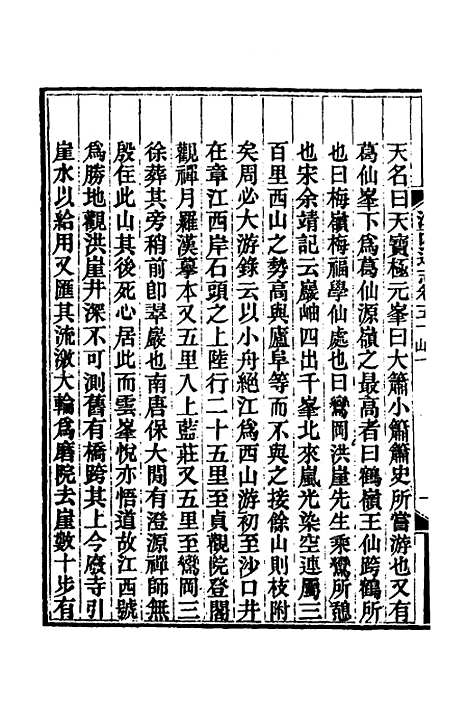 天名曰天寶極元峯曰大簫小簫簫史所嘗游也又有
葛仙峯下爲葛仙源嶺之最高者曰鶴嶺王仙跨鶴所
也曰梅嶺梅福學仙處也曰鸞岡洪崖先生乘鸞所憩
也宋余靖記云巖岫四出千峯北來嵐光染空連屬三
百里西山之勢高與廬阜等而不與之接餘山則枝附
矣周必大游錄云以小舟絕江爲西山游初至沙口井
在章江西岸石頭之上陸行二十五里至貞觀院登閣
觀禪月羅漢摹本又五里入上藍莊又五里至鸞岡三
徐葬其旁稍前卽翠巖也南唐保大閒有澄源禪師無
殷住此山其後死心居此而雲峯悅亦悟道故江西號
爲勝地觀洪崖井深不可測舊有橋跨其上今廢寺引
崖水以給用又匯其流激大輪爲磨院去崖數十步有
卷五十 山一